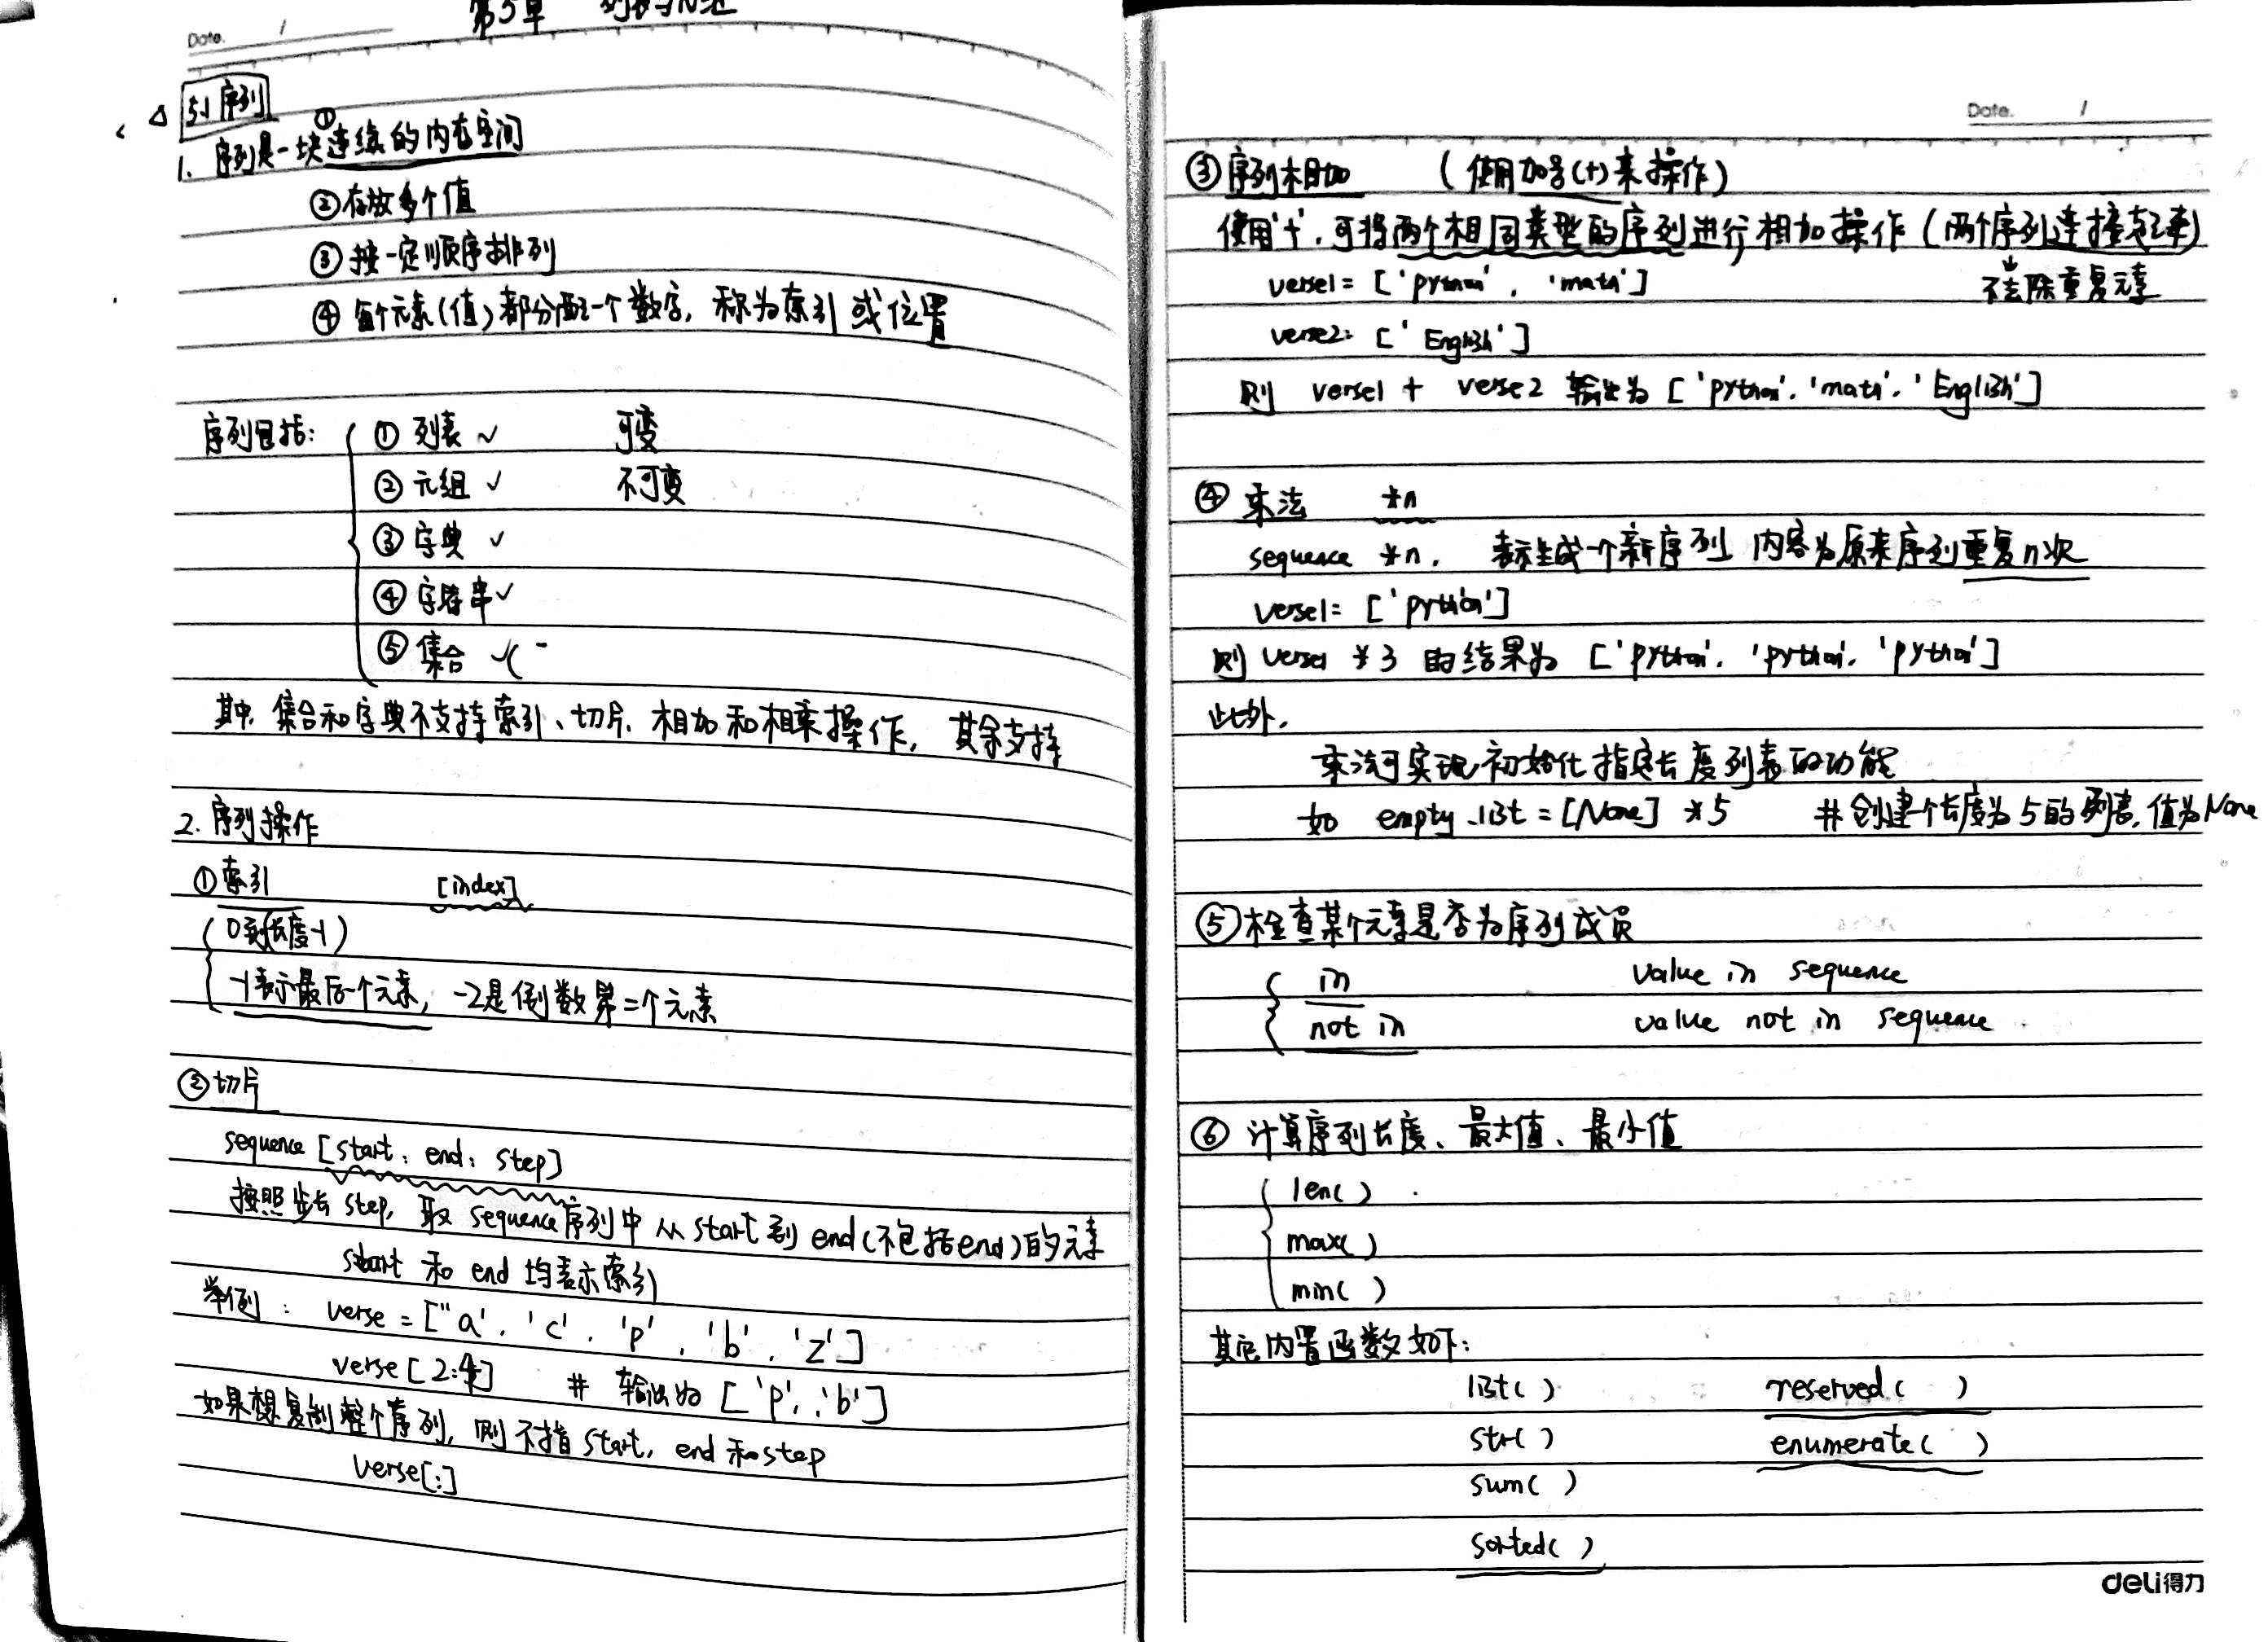 第5章 列表与元组
Date. /
△ 5.1 序列
1. 序列是一块①连续的内存空间
②存放多个值
③按一定顺序排列
④每个元素(值)都分配一个数字, 称为索引或位置
序列包括:
①列表 ✓ 可变
②元组 ✓ 不可变
③字典 ✓
④字符串 ✓
⑤集合 ✓
其中, 集合和字典不支持索引、切片、相加和相乘操作, 其余支持
2. 序列操作
①索引 [index]
0到(长度-1)
-1表示最后一个元素, -2是倒数第二个元素
②切片
sequence [start: end: step]
按照步长 step, 取 sequence 序列中从 start 到 end (不包括end) 的元素
start 和 end 均表示索引
举例: verse = ["a', 'c', 'p', 'b', 'z']
verse[2:4] # 输出为 ['p', 'b']
如果想复制整个序列, 则不指 start, end 和 step
verse[:]
Date. /
③序列相加 (使用加号(+)来操作)
使用'+', 可将两个相同类型的序列进行相加操作 (两个序列连接起来)
↓
不去除重复元素
verse1= ['python', 'math']
verse2= ['English']
则 verse1 + verse2 输出为 ['python', 'math', 'English']
④乘法 *n
sequence *n, 表示生成一个新序列 内容为原来序列重复n次
verse1= ['python']
则 verse1 *3 的结果为 ['python', 'python', 'python']
此外,
乘法可实现初始化指定长度列表的功能
如 empty_list = [None] *5 #创建一个长度为5的列表, 值为None
⑤检查某个元素是否为序列成员
in value in sequence
not in value not in sequence
⑥ 计算序列长度、最大值、最小值
len( )
max( )
min( )
其它内置函数如下:
list( ) reserved( )
str( ) enumerate( )
sum( )
sorted( )
deli得力